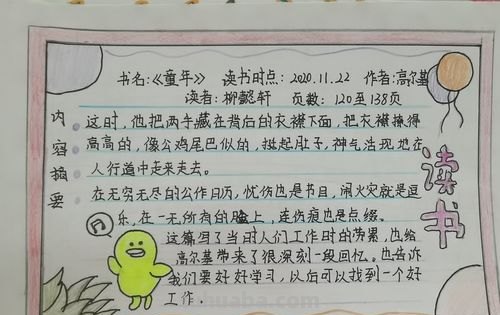 书名:《童年》 读书时点:2020.11.22 作者:高尔基
读者:柳懿轩 页数:120至138页
内容摘要
这时,他把两手藏在背后的衣襟下面,把衣襟撩得
高高的,像公鸡尾巴似的,挺起肚子,神气活现地在
人行道中走来走去。
在无穷无尽的公作日历,忧伤也是节日,闹火灾就是逗
乐,在一无所有的脸上,连伤痕也是点缀。
这篇写了当时人们工作时的劳累,也给
高尔基带来了很深刻一段回忆。也告诉
我们要好好学习,以后可以找到一个好
工作.
读书